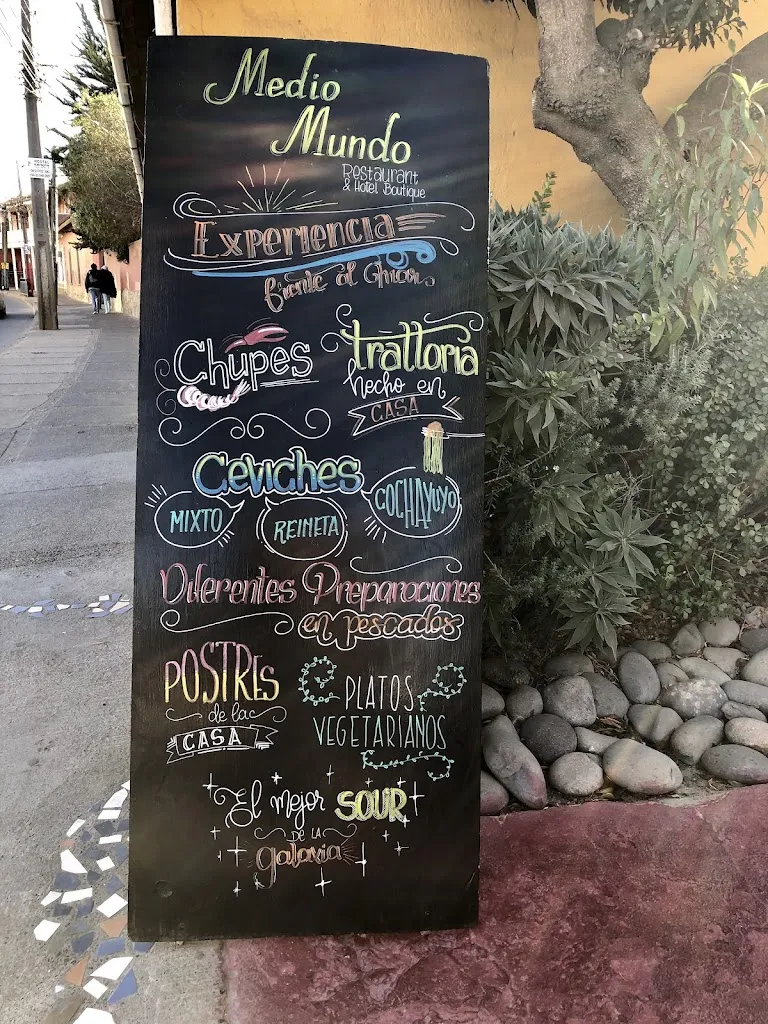 Medio
Mundo
Restaurant
& Hotel Boutique
Experiencia
frente al Mar
Chupes
trattoria
hecho en
CASA
Ceviches
MIXTO
REINETA
COCHAYUYO
Diferentes Preparaciones
en pescados
POSTRES
de la
CASA
PLATOS
VEGETARIANOS
El mejor SOUR
DE LA
galaxia